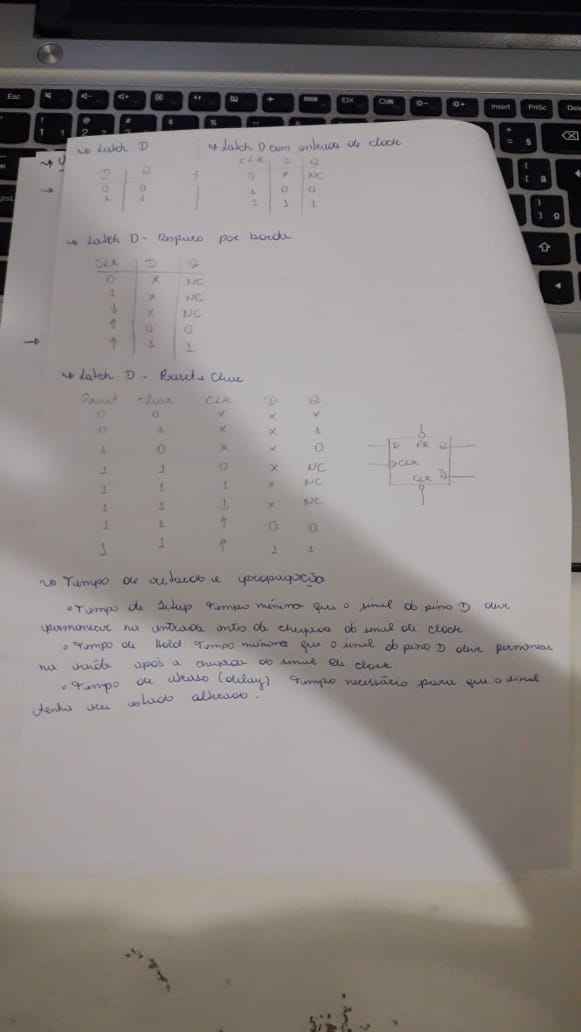 ↝ Latch D ↝ Latch D com entrada de clock
D Q CLK D Q
0 0 0 x NC
1 1 1 0 0
1 1 1
↝ Latch D - Disparo por borda
CLK D Q
0 x NC
1 x NC
↓ x NC
↑ 0 0
↑ 1 1
↝ Latch D - Preset e Clear
Preset Clear CLK D Q
0 0 x x x
0 1 x x 1
1 0 x x 0
1 1 0 x NC
1 1 1 x NC
1 1 ↓ x NC
1 1 ↑ 0 0
1 1 ↑ 1 1
D PR Q
CLK
CLR Q̅
↝ Tempo de e propagação
• Tempo de Setup Tempo mínimo que o sinal do pino D deve
permanecer na entrada antes da chegada do sinal de clock.
• Tempo de Hold Tempo mínimo que o sinal do pino D deve permanecer
na saída após a chegada do sinal de clock.
• Tempo de atraso (delay) Tempo necessário para que o sinal
tenha seu estado alterado.
Esc
Insert PrtSc Del